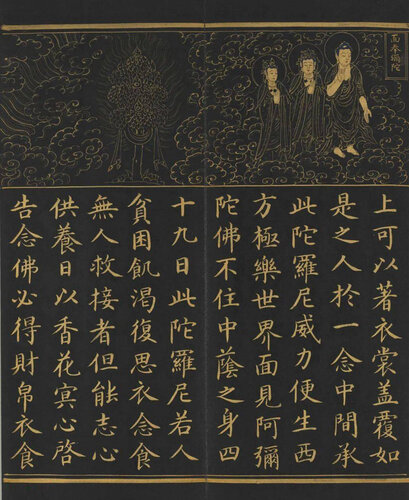 面奉彌陀
上可以著衣裳蓋覆如
是之人於一念中間承
此陀羅尼威力便生西
方極樂世界面見阿彌
陀佛不住中蔭之身四
十九日此陀羅尼若人
貧困飢渴復思衣念食
無人救接者但能志心
供養日以香花冥心啓
告念佛必得財帛衣食